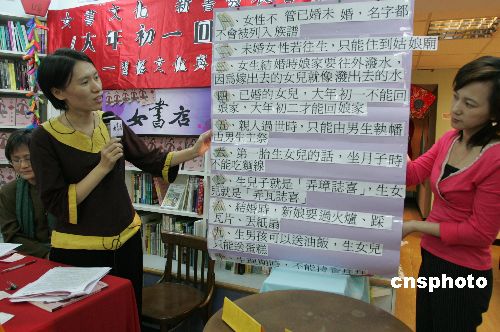 女書文化 新書
大年初一回
女書店
一、女性不管已婚未婚,名字都
不會被列入族譜
二、未婚女性若往生,只能住到姑娘廟
三、女生結婚時娘家要往外潑水,
因為嫁出去的女兒就像潑出去的水
四、已婚的女兒,大年初一不能回
娘家,大年初二才能回娘家
五、親人過世時,只能由男生執幡
由男生主祭
六、第一胎生女兒的話,坐月子時
不能吃麵線
七、生兒子就是「弄璋誌喜」,生女
兒就是「弄瓦誌喜」
八、結婚時,新娘要過火爐、踩
瓦片、丟紙扇
九、生男孩可以送油飯,生女兒
只能送蛋糕
cnsphoto